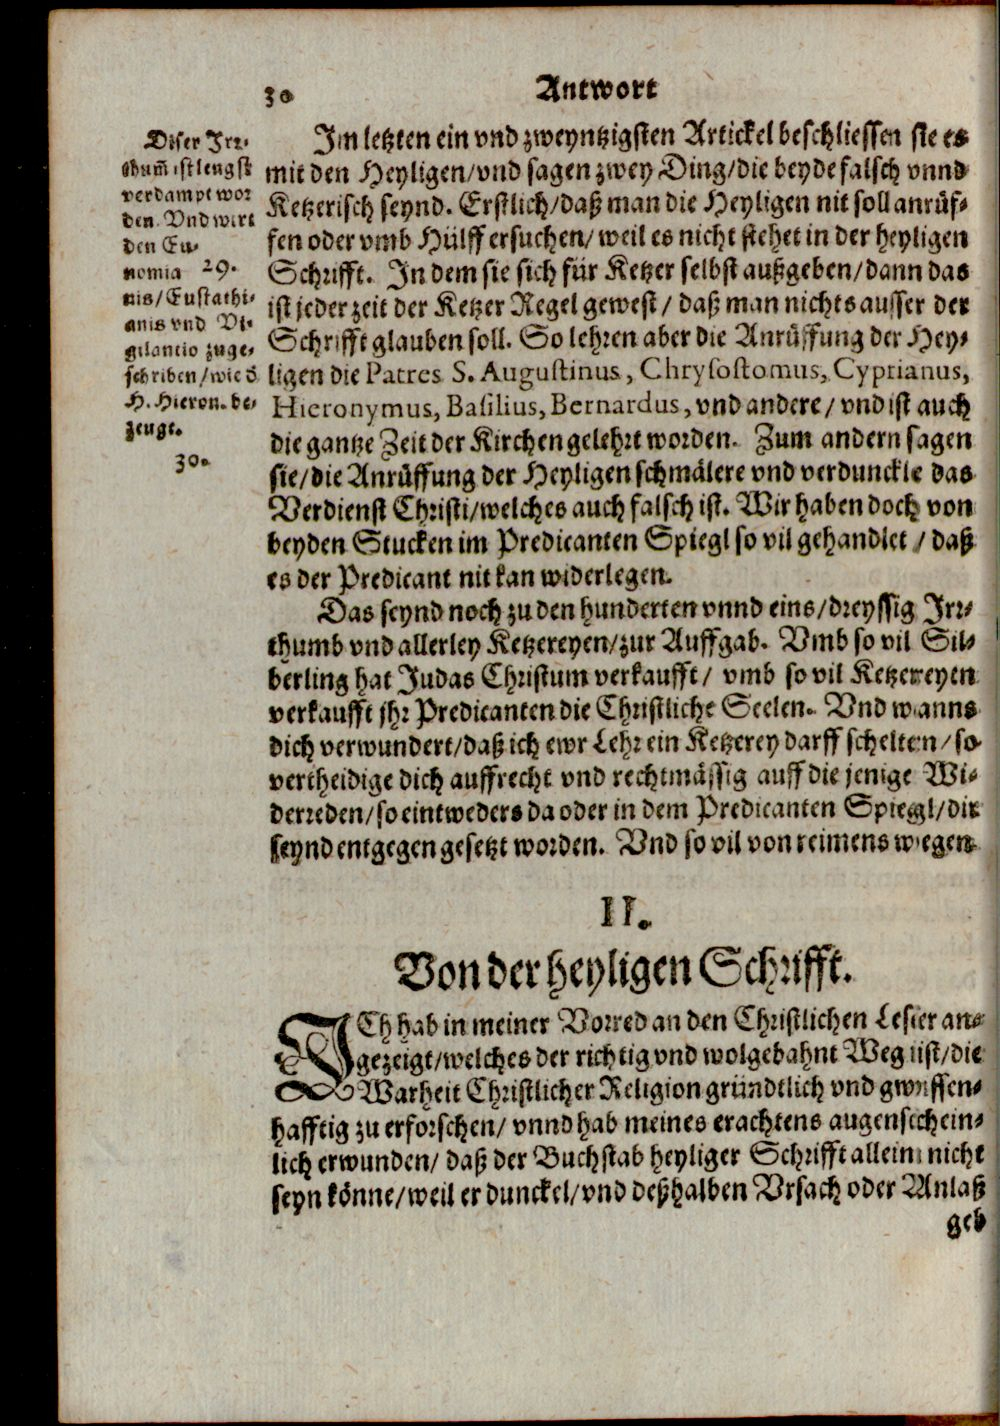 30 Antwort
Diser Irr-
thum̃ ist lengst
verdampt wor
den. Vnd wirt
den Eu-
nomia 29.
nis/Eustathi-
anis vnd Vi-
gilantio zuge-
schriben/wie d̃
H. Hieron. be-
zeugt.
30.
Im letzten ein vnd zweyntzigsten Artickel beschliessen sie es
mit den Heyligen/vnd sagen zwey Ding/die beyde falsch vnnd
Ketzerisch seynd. Erstlich/daß man die Heyligen nit soll anrüf-
fen oder vmb Hülff ersuchen/ weil es nicht stehet in der heyligen
Schrifft. In dem sie sich für Ketzer selbst außgeben/dann das
ist jeder zeit der Ketzer Regel gewest/ daß man nichts ausser der
Schrifft glauben soll. So lehren aber die Anrüffung der Hey-
ligen die Patres S. Augustinus, Chrysostomus, Cyprianus,
Hieronymus, Basilius, Bernardus, vnd andere/ vnd ist auch
die gantze Zeit der Kirchen gelehrt worden. Zum andern sagen
sie/die Anrüffung der Heyligen schmälere vnd verdunckle das
Verdienst Christi/welches auch falsch ist. Wir haben doch von
beyden Stucken im Predicanten Spiegl so vil gehandlet/ daß
es der Predicant nit kan widerlegen.
Das seynd noch zu den hunderten vnnd eins/dreyssig Irr-
thumb vnd allerley Ketzereyen/zur Auffgab. Vmb so vil Sil-
berling hat Judas Christum verkaufft/ vmb so vil Ketzereyen
verkaufft jhr Predicanten die Christliche Seelen. Vnd wanns
dich verwundert/daß ich ewr Lehr ein Ketzerey darff schelten/so
vertheidige dich auffrecht vnd rechtmässig auff die jenige Wi-
derreden/so eintweders da oder in dem Predicanten Spiegl/dir
seynd entgegen gesetzt worden. Vnd so vil von reimens wegen
II.
Von der heyligen Schrifft.
ICh hab in meiner Vorred an den Christlichen Leser an-
gezeigt/welches der richtig vnd wolgebahnt Weg ist/die
Warheit Christlicher Religion gründtlich vnd gwissen-
hafftig zu erforschen/ vnnd hab meines erachtens augenschein-
lich erwunden/ daß der Buchstab heyliger Schrifft allein nicht
seyn könne/weil er dunckel/vnd deßhalben Vrsach oder Anlaß
geb